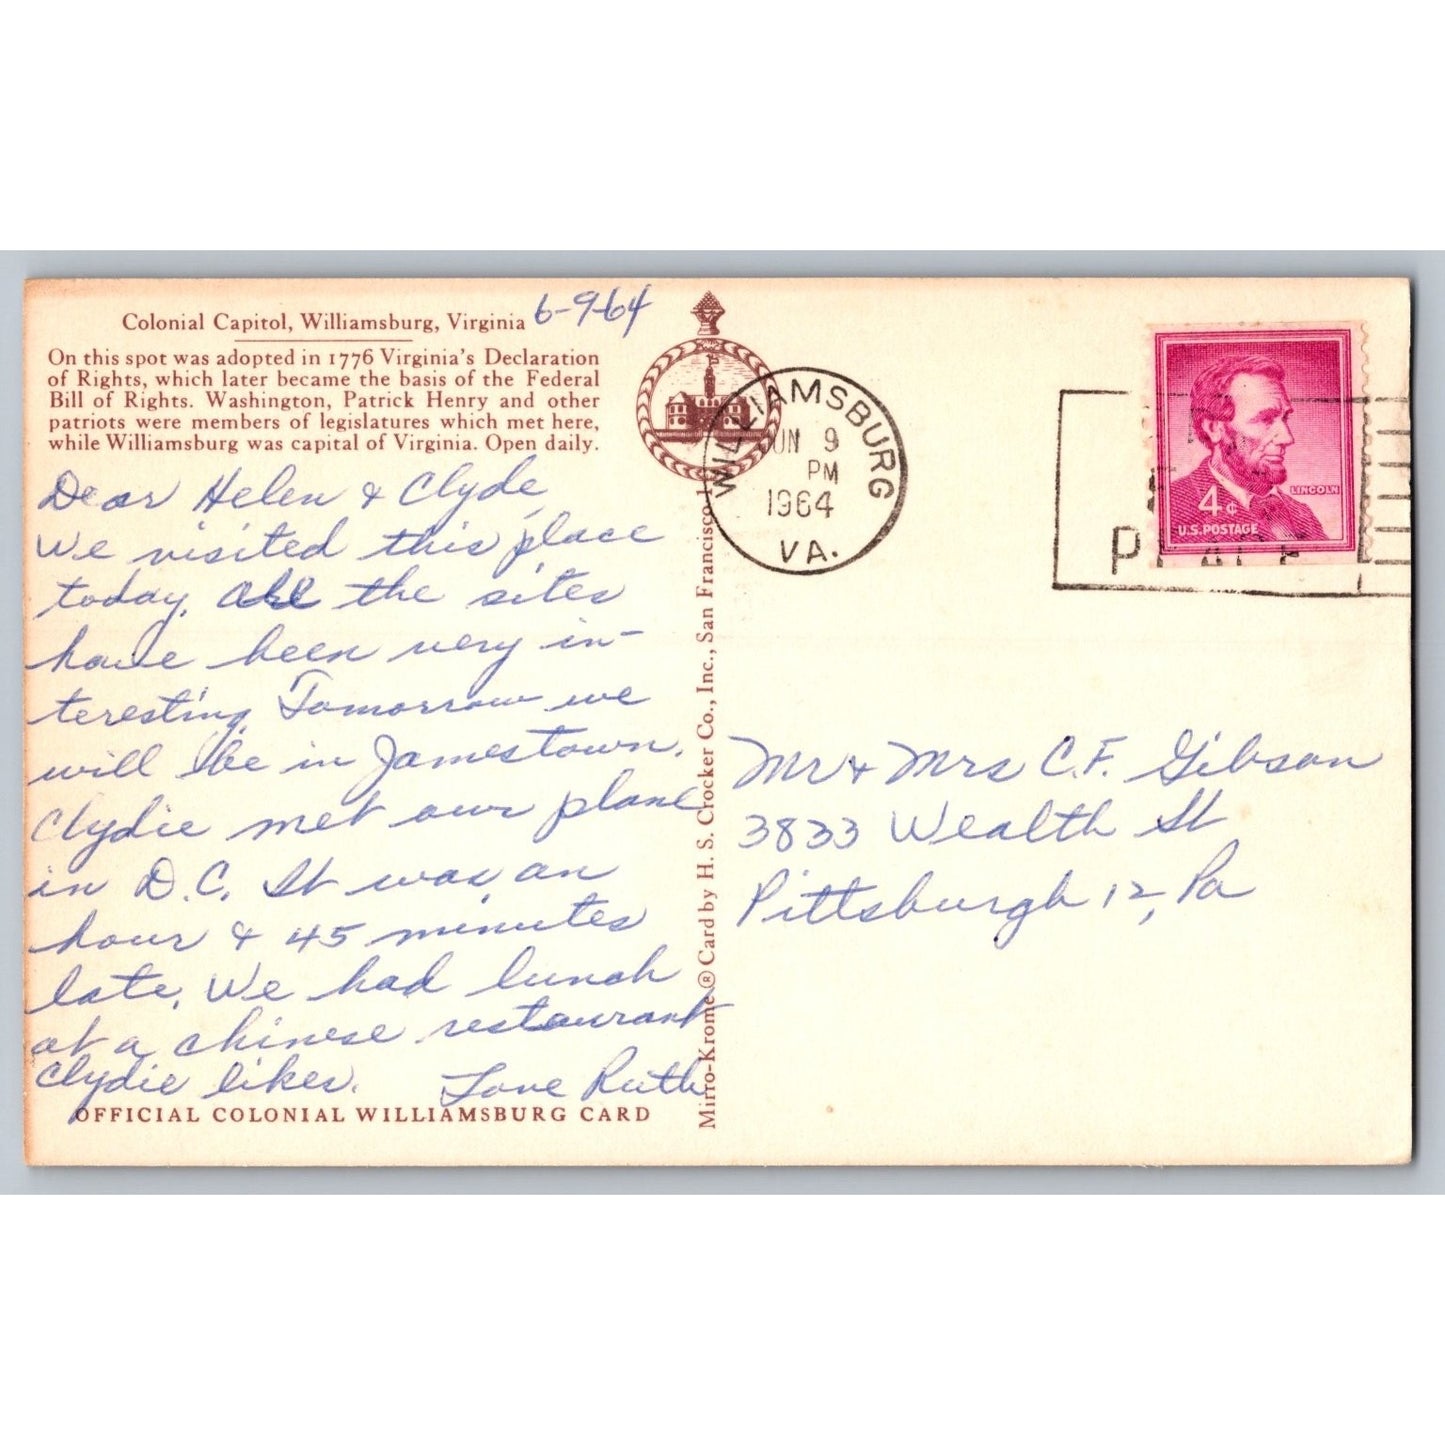 Colonial Capitol, Williamsburg, Virginia
6-9-64
On this spot was adopted in 1776 Virginia's Declaration
of Rights, which later became the basis of the Federal
Bill of Rights. Washington, Patrick Henry and other
patriots were members of legislatures which met here,
while Williamsburg was capital of Virginia. Open daily.
Dear Helen & Clyde,
We visited this place
today. All the sites
have been very in-
teresting. Tomorrow we
will be in Jamestown.
Clydie met our plane
in D.C. It was an
hour & 45 minutes
late. We had lunch
at a chinese restaurant
Clydie likes. Love Ruth
OFFICIAL COLONIAL WILLIAMSBURG CARD
Mirro-Krome® Card by H. S. Crocker Co., Inc., San Francisco
WILLIAMSBURG
JUN 9
PM
1964
VA.
LINCOLN
4¢
U.S. POSTAGE
Mr & Mrs C.F. Gibson
3833 Wealth St
Pittsburgh 12, Pa